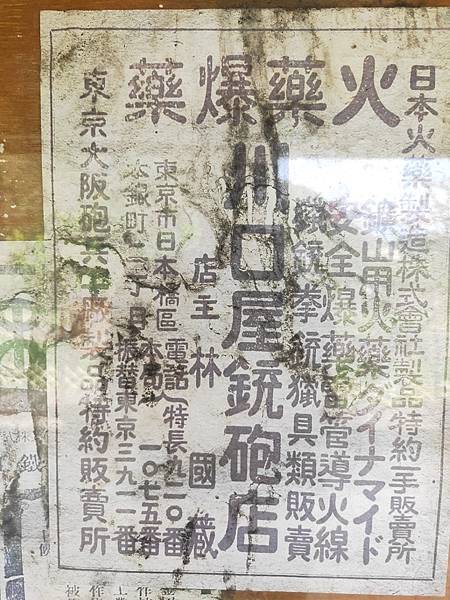 火藥爆藥
日本火藥製造株式會社製品特約一手販賣所
鑛山用火藥ダイナマイド
安全爆藥雷管導火線
獵銃拳銃獵具類販賣
川口屋銃砲店
店主林國藏
東京市日本橋區
本銀町二丁目
電話(特長九一〇番
本局一〇七五番
振替東京三九二一番
東京大阪砲兵工廠製品特約販賣所